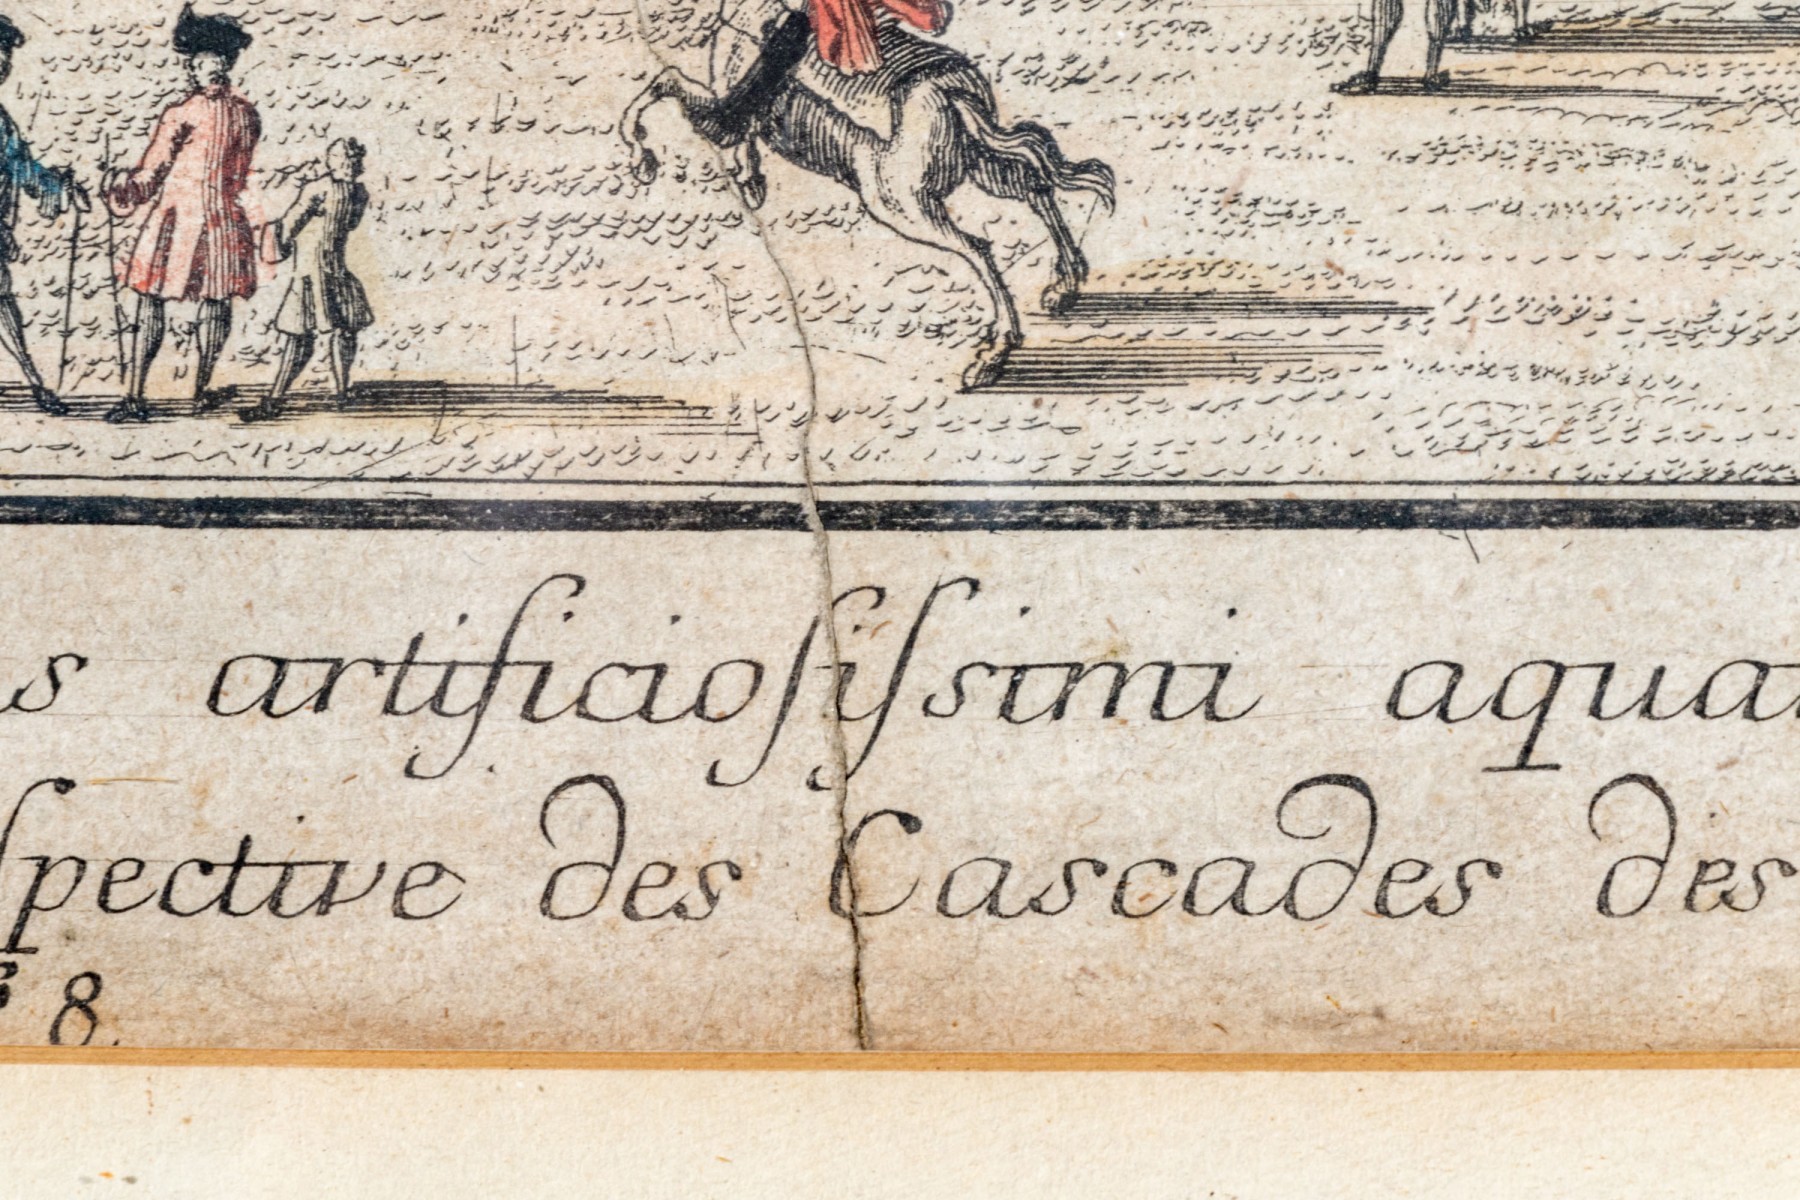 s artificioſiſsimi aquar
ſpective des Cascades des
8.